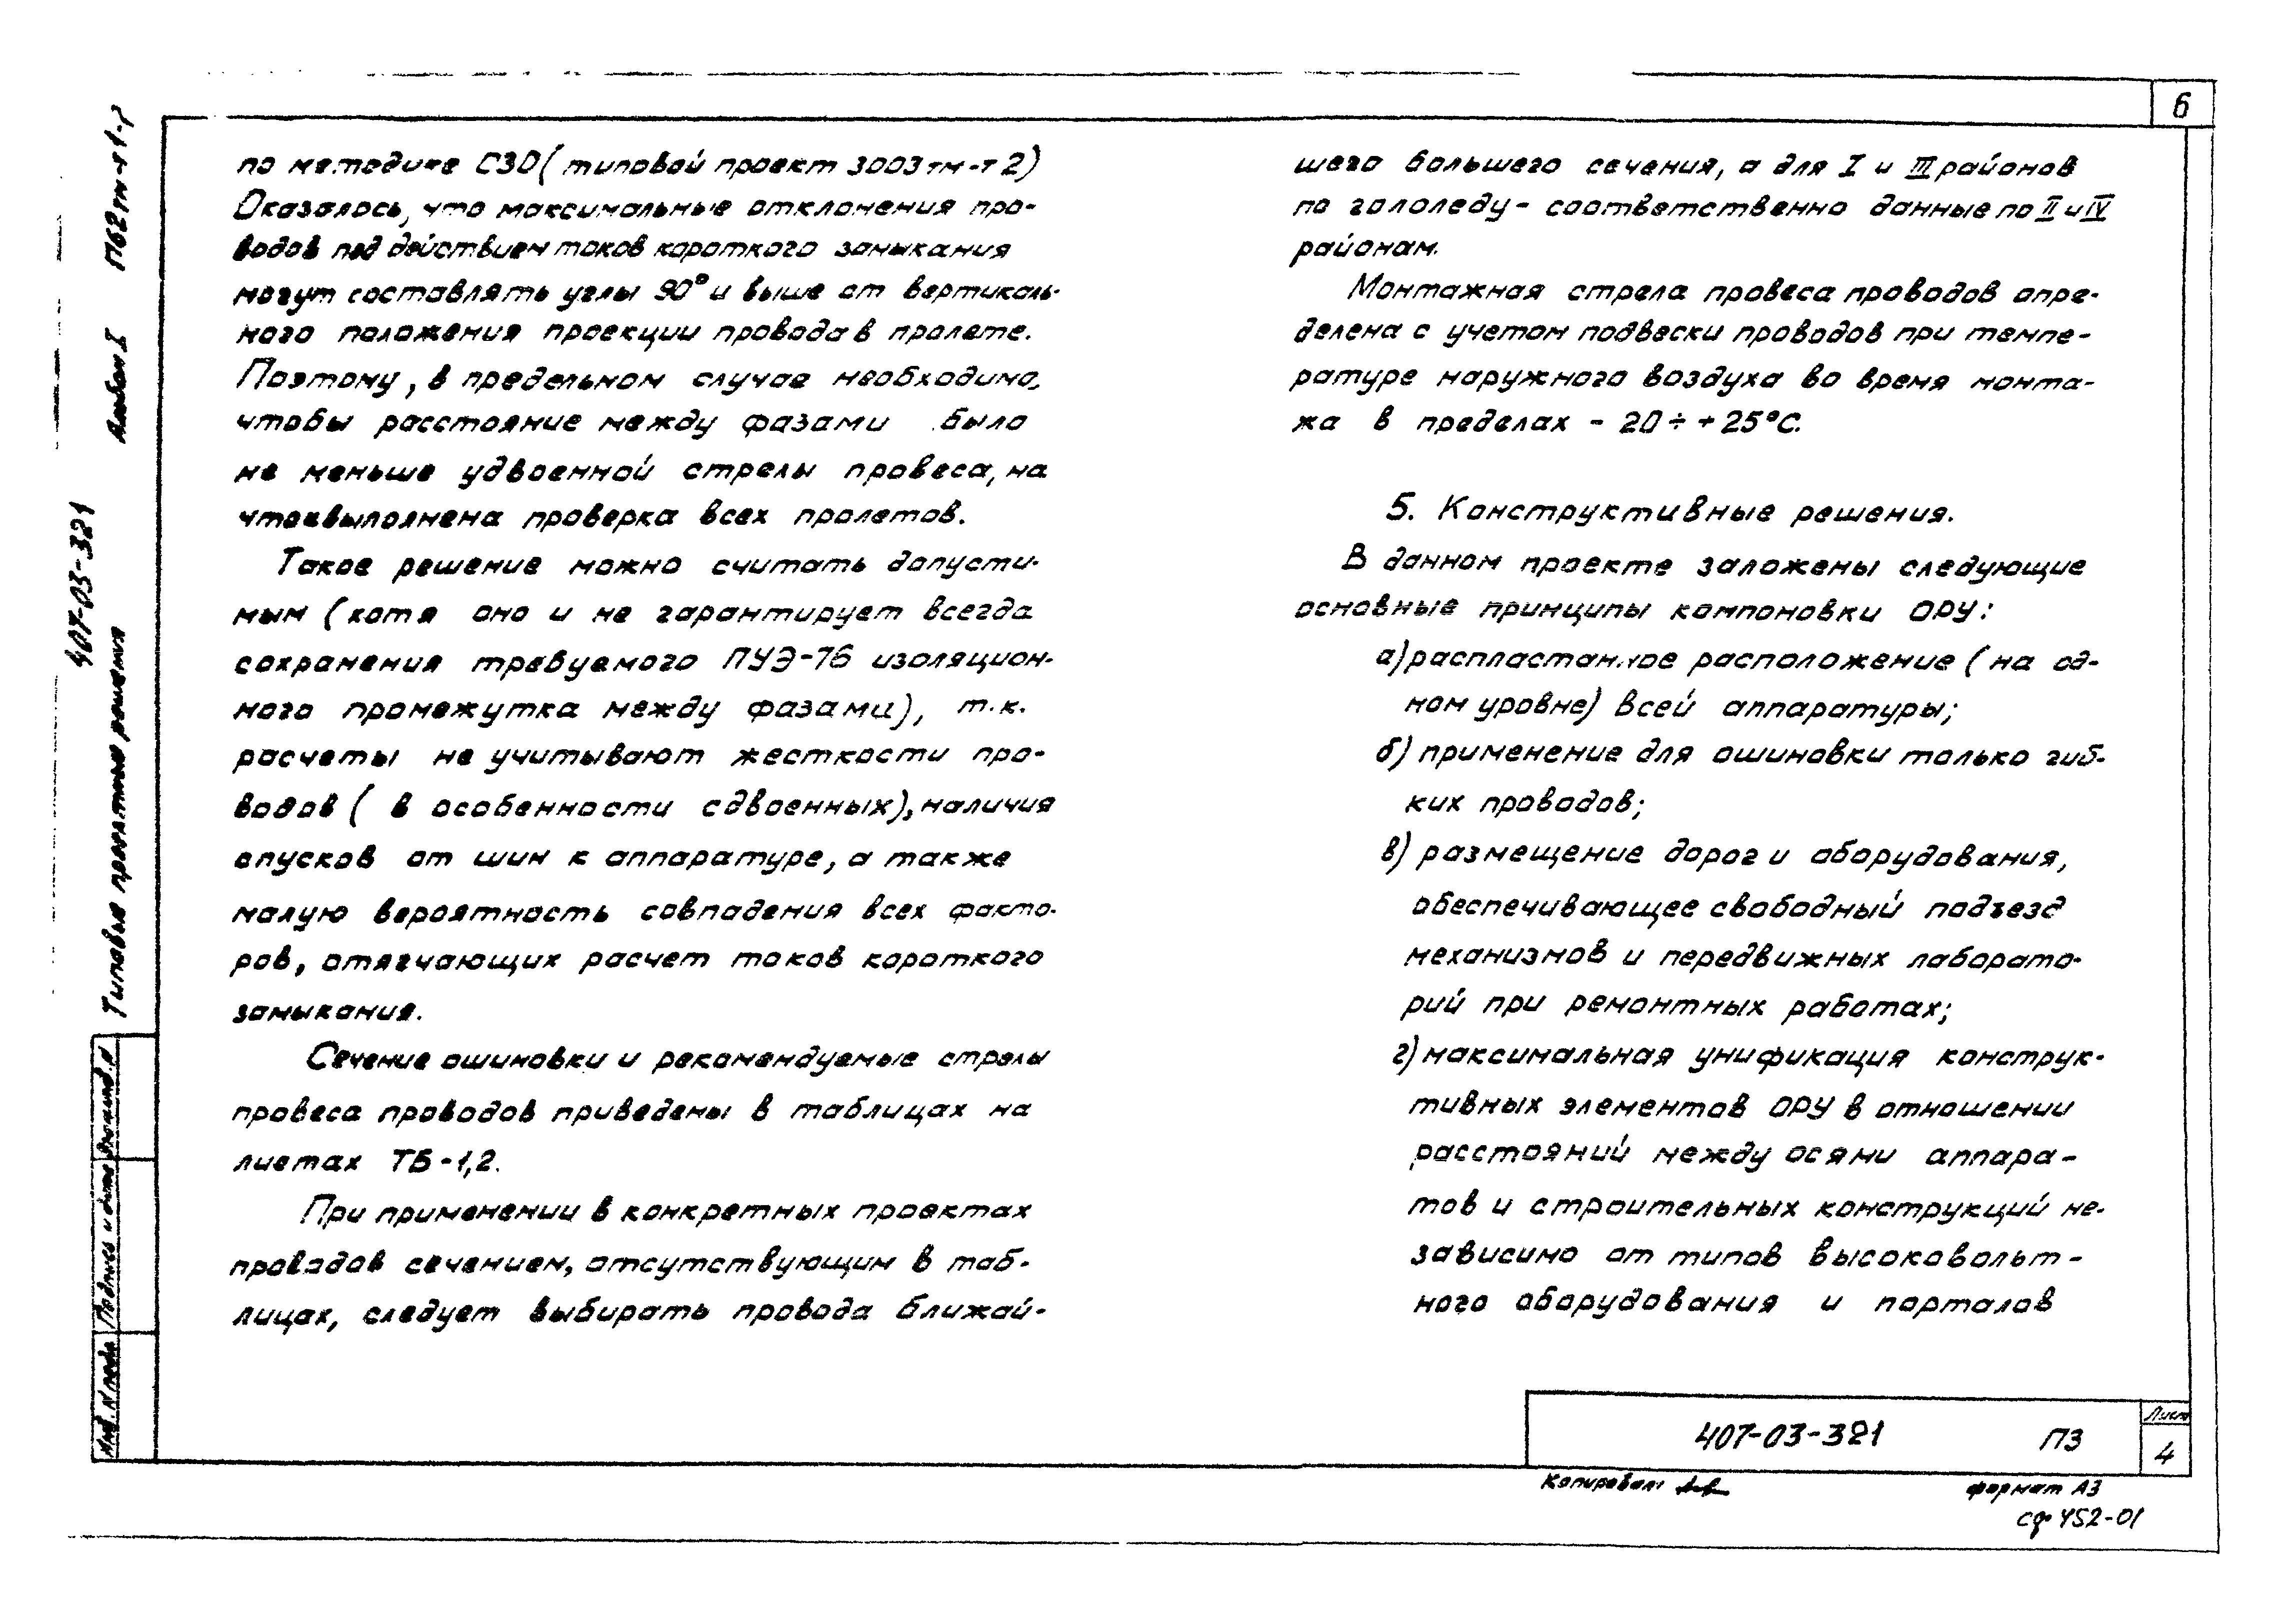 6
по методике СЗО (типовой проект 3003тм-т2)
Оказалось, что максимальные отклонения про-
водов под действием токов короткого замыкания
могут составлять углы 90° и выше от вертикаль-
ного положения проекции провода в пролете.
Поэтому, в предельном случае необходимо,
чтобы расстояние между фазами было
не меньше удвоенной стрелы провеса, на
что и выполнена проверка всех пролетов.
Такое решение можно считать допусти-
мым (хотя оно и не гарантирует всегда
сохранения требуемого ПУЭ-76 изоляцион-
ного промежутка между фазами), т.к.
расчеты не учитывают жесткости про-
водов (в особенности сдвоенных), наличия
спусков от шин к аппаратуре, а также
малую вероятность совпадения всех факто-
ров, отягчающих расчет токов короткого
замыкания.
Сечение ошиновки и рекомендуемые стрелы
провеса проводов приведены в таблицах на
листах ТБ-1,2.
При применении в конкретных проектах
проводов сечением, отсутствующим в таб-
лицах, следует выбирать провода ближай-
шего большего сечения, а для I и III районов
по гололеду - соответственно данные по II и IV
районам.
Монтажная стрела провеса проводов опре-
делена с учетом подвески проводов при темпе-
ратуре наружного воздуха во время монта-
жа в пределах - 20 ÷ + 25°С.
5. Конструктивные решения.
В данном проекте заложены следующие
основные принципы компоновки ОРУ:
а) распластанное расположение (на од-
ном уровне) всей аппаратуры;
б) применение для ошиновки только гиб-
ких проводов;
в) размещение дорог и оборудования,
обеспечивающее свободный подъезд
механизмов и передвижных лаборато-
рий при ремонтных работах;
г) максимальная унификация конструк-
тивных элементов ОРУ в отношении
расстояний между осями аппара-
тов и строительных конструкций не-
зависимо от типов высоковольт-
ного оборудования и порталов
407-03-321
Типовые проектные решения Альбом I
Взам.инв.№
Подпись и дата
Инв. № подл
407-03-321 ПЗ
Лист
4
Копировал:
формат А3
сф 452-01